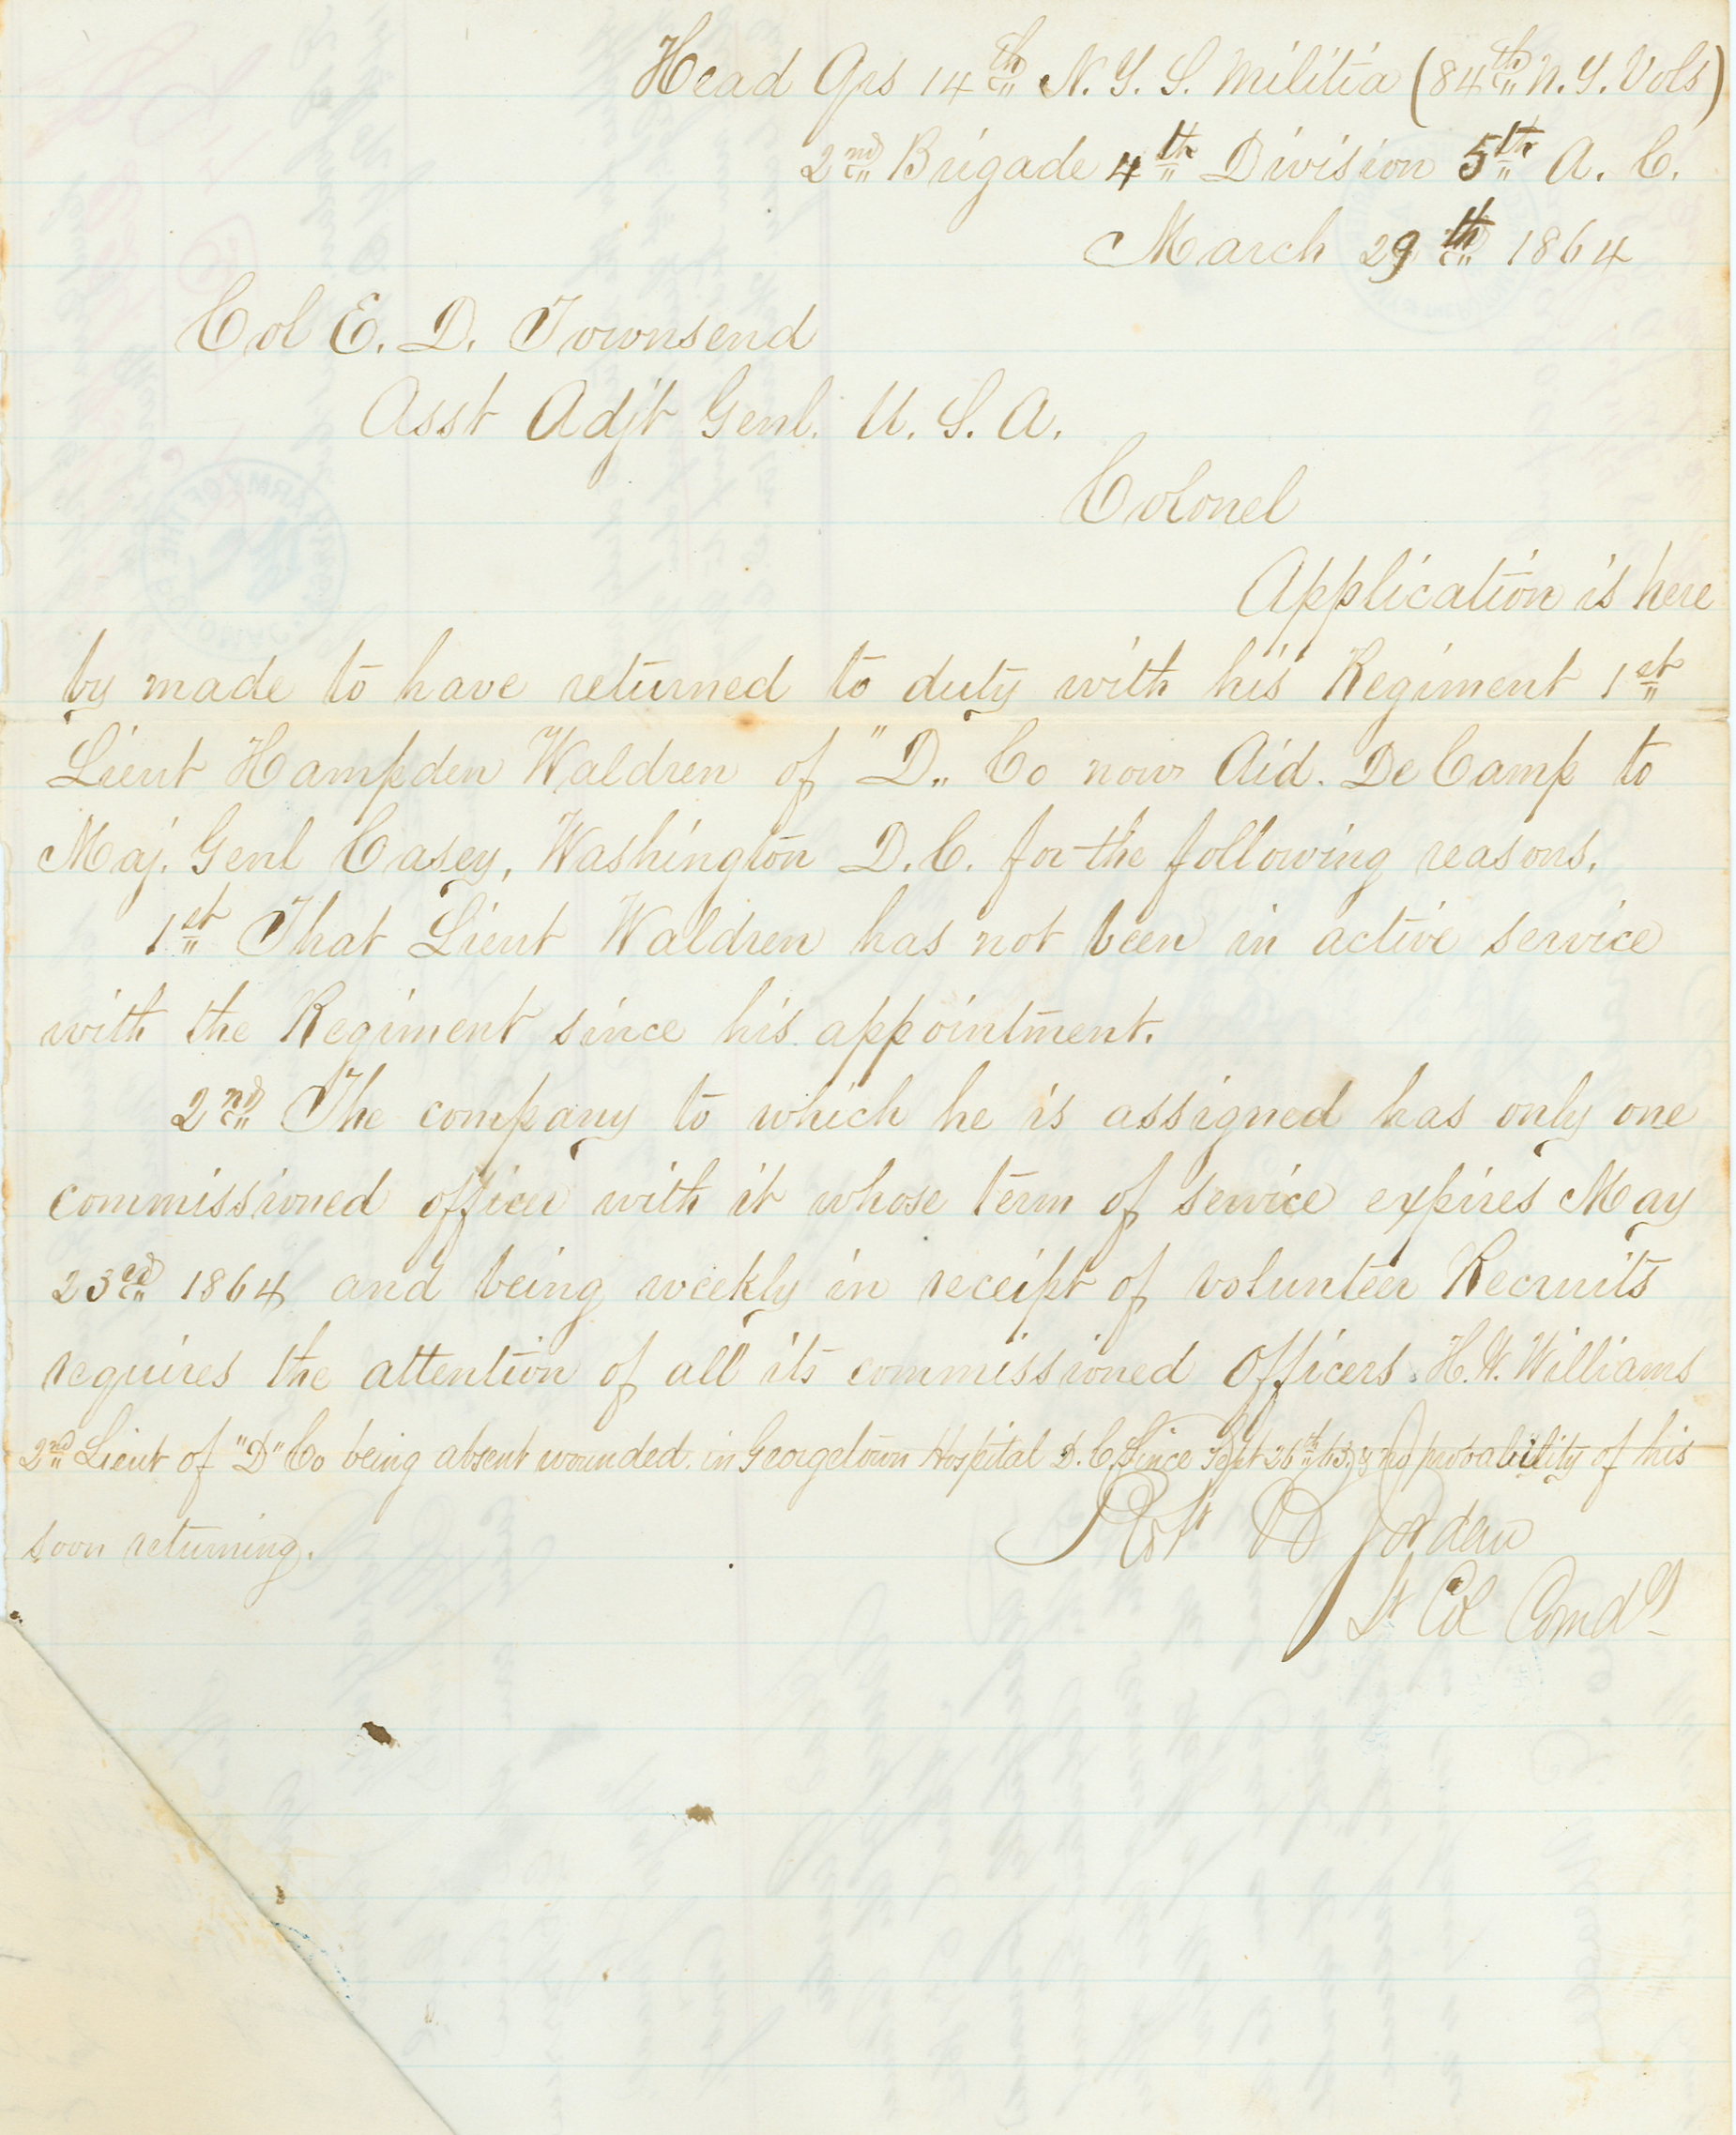 Head Qrs 14th N. Y. S. Militia (84th N. Y. Vols)
2nd Brigade 4th Division 5th A. C.
March 29th 1864
Col E. D. Townsend
Asst Adjt Genl. U. S. A.
Colonel
Application is here
by made to have returned to duty with his Regiment 1st
Lieut Hampden Waldren of "D" Co now Aid. De Camp to
Maj. Genl Casey, Washington D. C. for the following reasons.
1st That Lieut Waldren has not been in active service
with the Regiment since his appointment.
2nd The company to which he is assigned has only one
commissioned officer with it whose term of service expires May
23rd 1864 and being weekly in receipt of volunteer Recruits
requires the attention of all its commissioned Officers. H. W. Williams
2nd Lieut of "D" Co being absent wounded in Georgetown Hospital D. C. Since Sept 26th 63. & no probability of his
soon returning.
Robt B Jordan
Lt Col Comdg